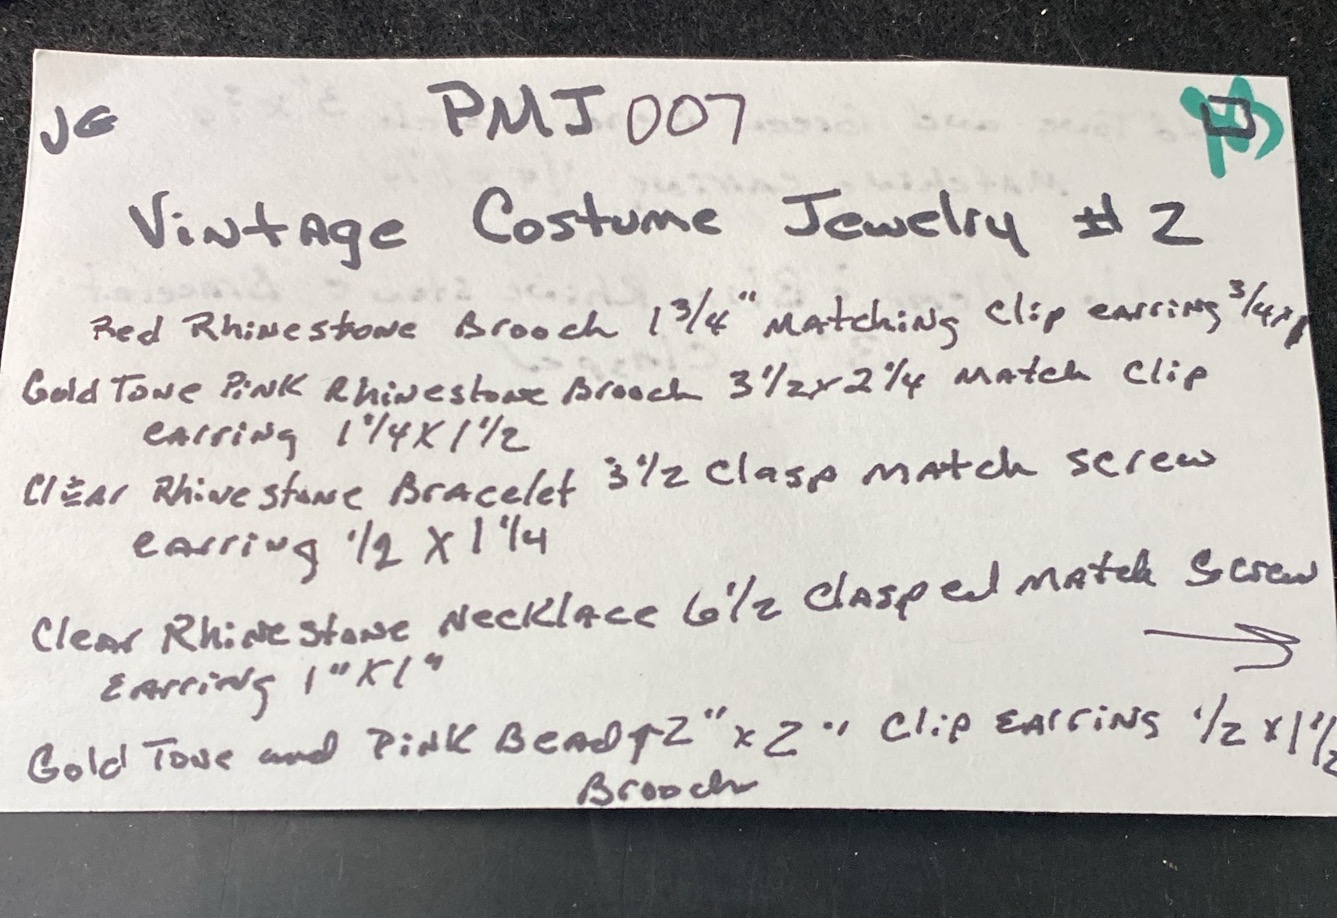 JG PMJ 007
Vintage Costume Jewelry # 2
Red Rhinestone Brooch 1 3/4" Matching Clip earring 3/4
Gold Tone Pink Rhinestone Brooch 3 1/2 x 2 1/4 Match Clip
earring 1 1/4 X 1 1/2
Clear Rhinestone Bracelet 3 1/2 Clasp Match screw
earring 1/2 X 1 1/4
Clear Rhinestone Necklace 6 1/2 Clasped Match Screw
Earring 1" X 1"
Gold Tone and Pink Bead 2" x 2" Clip Earring 1/2 x 1 1/2
Brooch